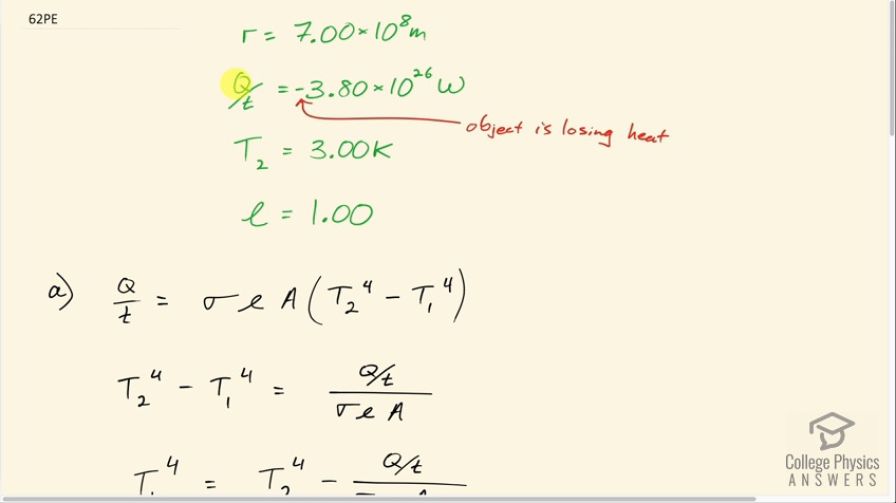 62PE
r = 7.00×10⁸m
Q/t = -3.80×10²⁶W
object is losing heat
T₂ = 3.00K
e = 1.00
a) Q/t = σeA(T₂⁴ - T₁⁴)
T₂⁴ - T₁⁴ = (Q/t)/(σeA)
T₁⁴ = T₂⁴ - (Q/t)/(σeA)
College Physics
ANSWERS